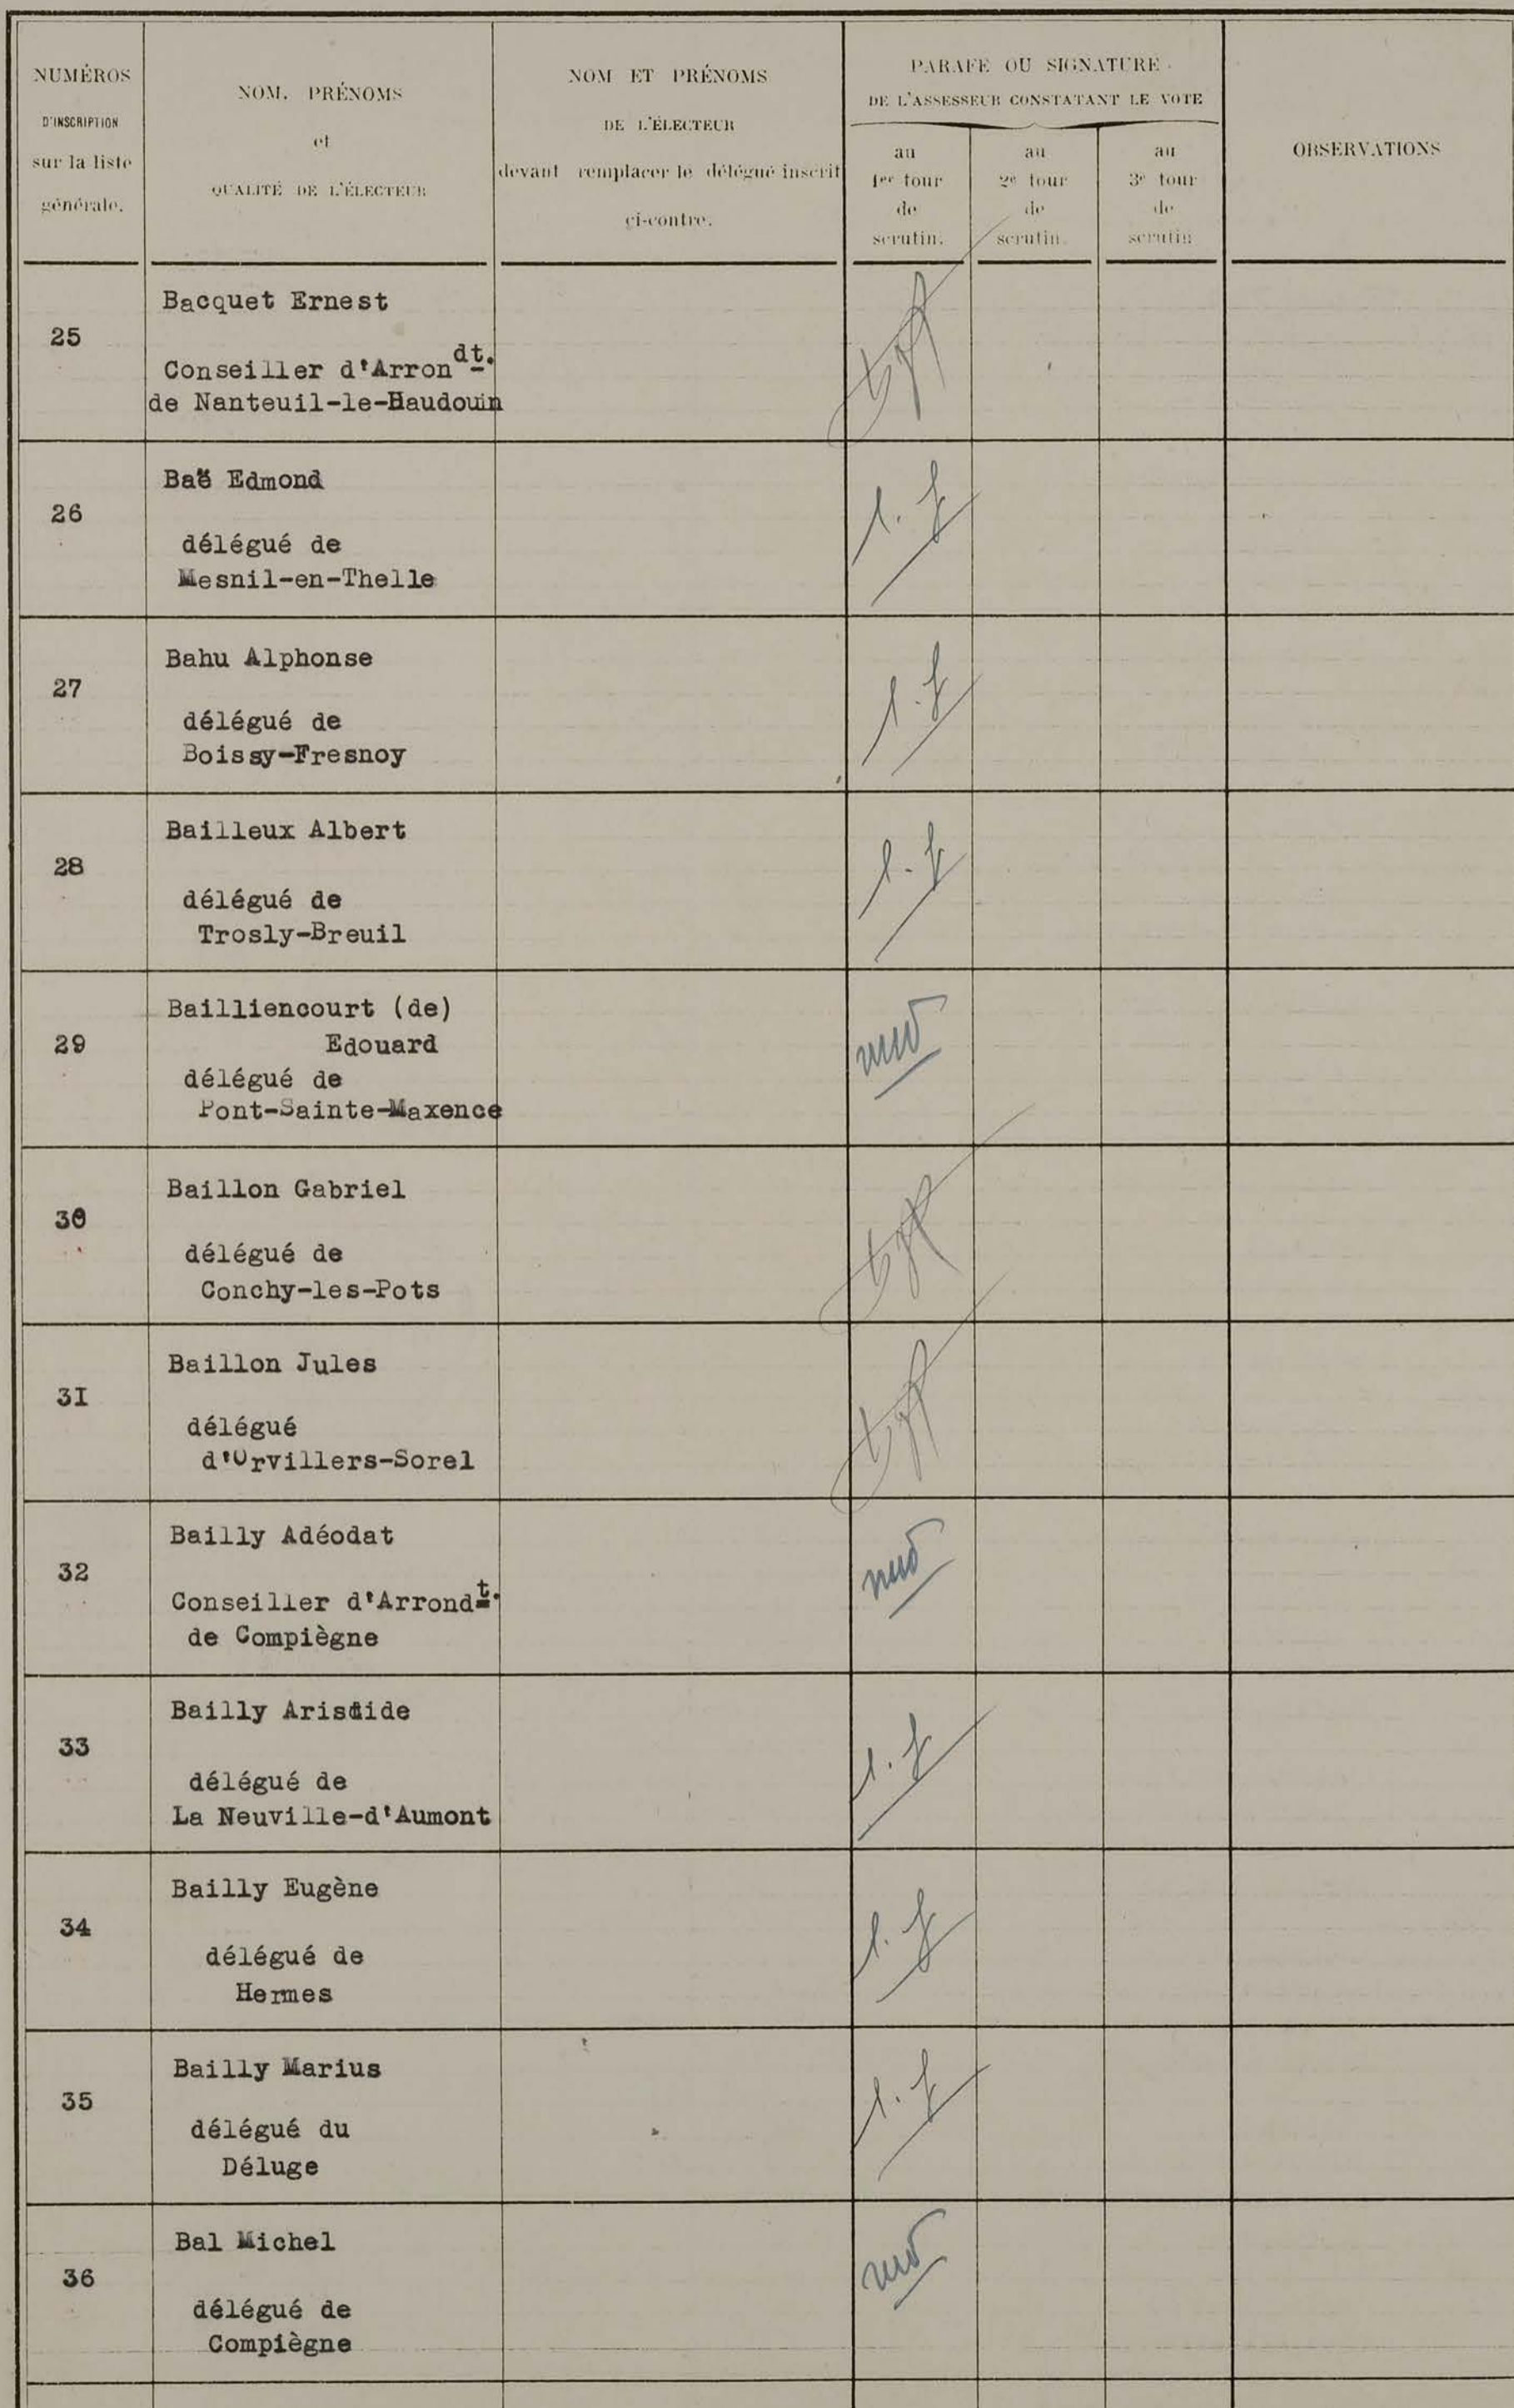 NUMÉROS
D'INSCRIPTION
sur la liste
générale.
NOM, PRÉNOMS
et
QUALITÉ DE L'ÉLECTEUR
NOM ET PRÉNOMS
DE L'ÉLECTEUR
devant remplacer le délégué inscrit
ci-contre.
PARAFE OU SIGNATURE
DE L'ASSESSEUR CONSTATANT LE VOTE
au
1er tour
de
scrutin.
au
2e tour
de
scrutin.
au
3e tour
de
scrutin
OBSERVATIONS
25
Bacquet Ernest
Conseiller d'Arrondt.
de Nanteuil-le-Haudouin
26
Baë Edmond
délégué de
Mesnil-en-Thelle
27
Bahu Alphonse
délégué de
Boissy-Fresnoy
28
Bailleux Albert
délégué de
Trosly-Breuil
29
Bailliencourt (de)
Edouard
délégué de
Pont-Sainte-Maxence
30
Baillon Gabriel
délégué de
Conchy-les-Pots
31
Baillon Jules
délégué
d'Orvillers-Sorel
32
Bailly Adéodat
Conseiller d'Arrondt.
de Compiègne
33
Bailly Aristide
délégué de
La Neuville-d'Aumont
34
Bailly Eugène
délégué de
Hermes
35
Bailly Marius
délégué du
Déluge
36
Bal Michel
délégué de
Compiègne